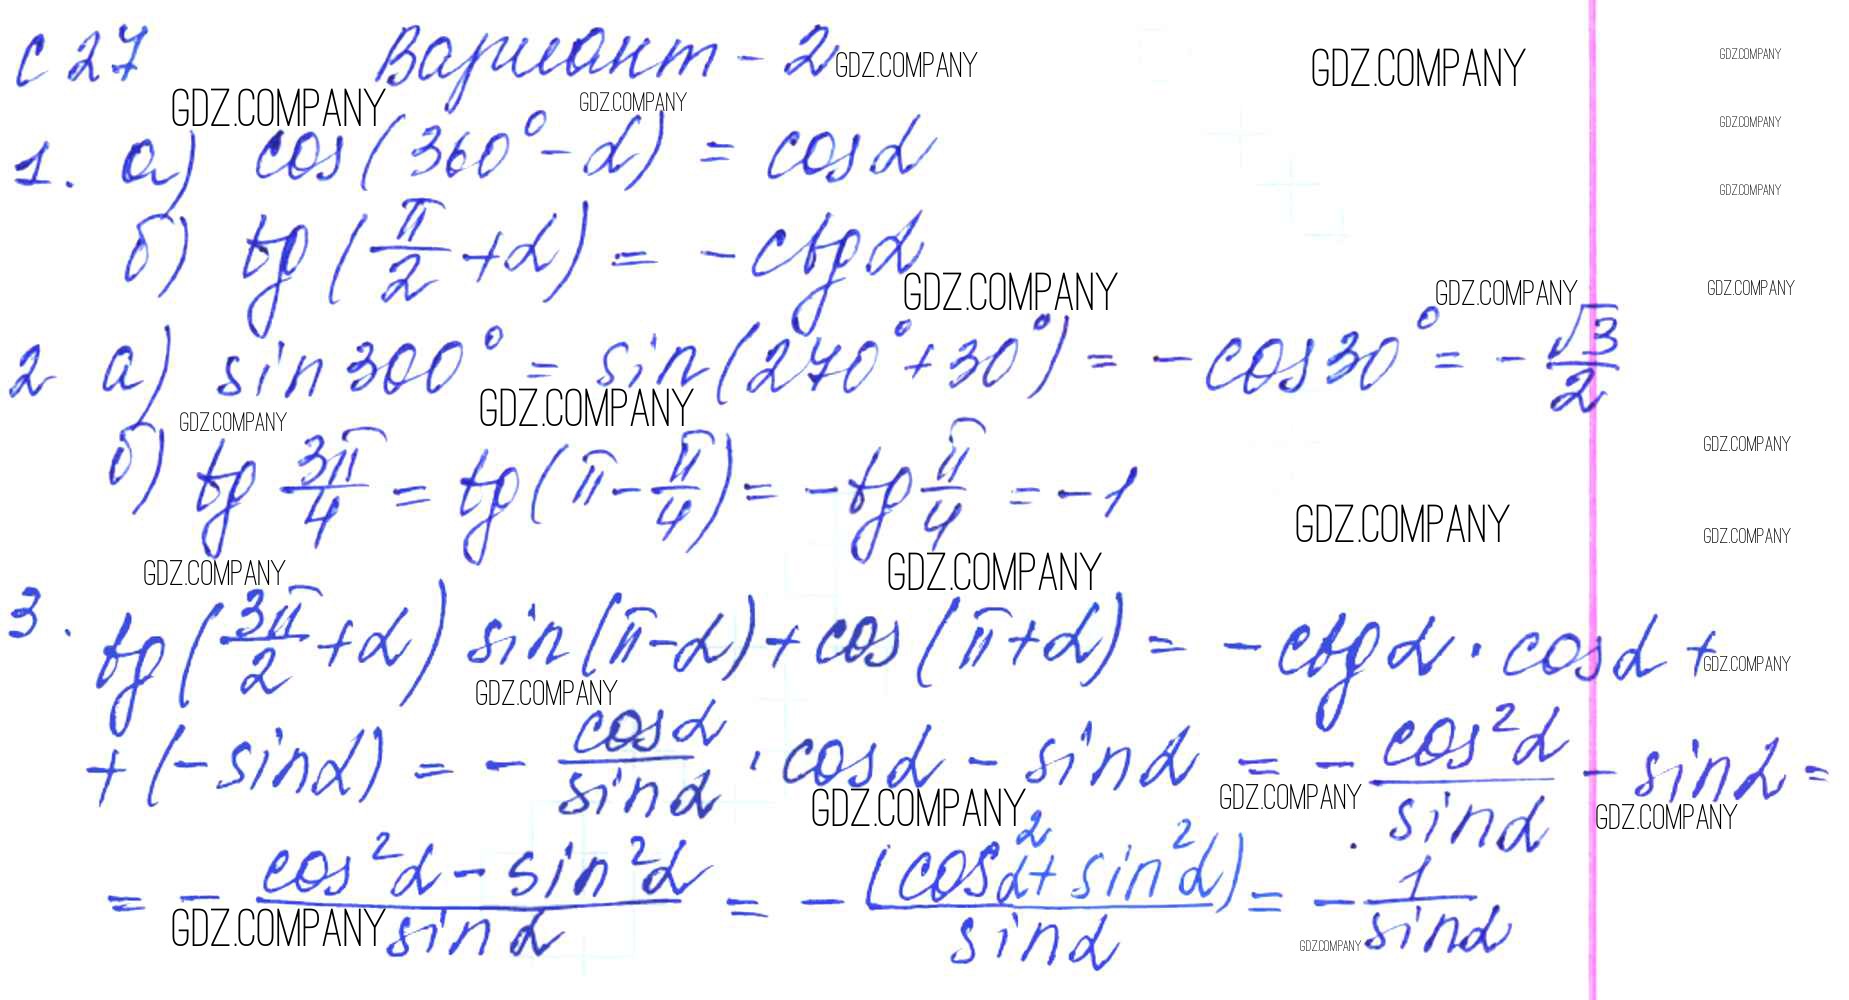 С 27 Вариант - 2 GDZ.COMPANY GDZ.COMPANY GDZ.COMPANY
GDZ.COMPANY GDZ.COMPANY GDZ.COMPANY
1. а) cos(360° - α) = cosα GDZ.COMPANY
б) tg(π/2 + α) = - ctgα
GDZ.COMPANY GDZ.COMPANY GDZ.COMPANY
2 а) sin 300° = sin(270° + 30°) = - cos 30° = - √3/2
GDZ.COMPANY GDZ.COMPANY GDZ.COMPANY
б) tg 3π/4 = tg(π - π/4) = - tg π/4 = - 1
GDZ.COMPANY GDZ.COMPANY
GDZ.COMPANY GDZ.COMPANY
3. tg(3π/2 + α) sin(π - α) + cos(π + α) = - ctgα · cosα +
GDZ.COMPANY GDZ.COMPANY
+ (- sinα) = - cosα/sinα · cosα - sinα = - cos²α/sinα - sinα =
GDZ.COMPANY GDZ.COMPANY GDZ.COMPANY
= - cos²α - sin²α/sinα = - (cos²α + sin²α)/sinα = - 1/sinα
GDZ.COMPANY GDZ.COMPANY